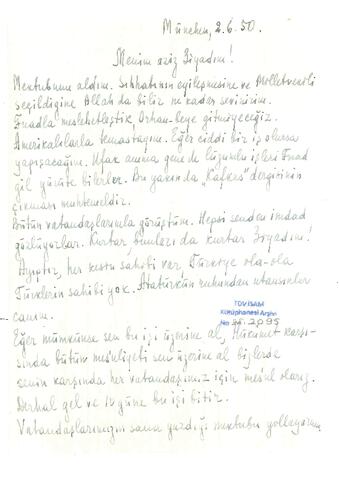 München, 2.6.50.
Menim aziz Ziyadım!
Mektubunu aldım. Sıhhatının eyileşmesine ve Milletvekili
seçildigine Allah da bilir ne kadar sevinirim.
Fuadla meslehetleştik Orhan-beye gitmiyeceğiz.
Amerikalılarla temastayım. Eğer ciddi bir iş olursa
yapışacağım. Ufak amma gene de lüzumlu işleri Fuad
gil yürüte bilerler. Bu yakında „Kafkas" dergisinin
çıkması muhtemeldir.
Bütün vatandaşlarımla görüştüm. Hepsi senden imdad
gözlüyorlar. Kurtar, bunları da kurtar Ziyadım!
Ayıptır, her kesin sahibi var Türkiye ola-ola
Türklerin sahibi yok. Atatürkün ruhundan utansınlar
canım.
TDV İSAM
Kütüphanesi Arşivi
No 2095
Eğer mümkünse sen bu işi üzerine al, Hükümet karşı-
sında bütün mesuliyeti sen üzerine al bizlerde
senin karşında her vatandaşımız için mesul olarız.
Derhal gel ve 10 güne bu işi bitir.
Vatandaşlarımızın sana yazdığı mektubu yollayorum.